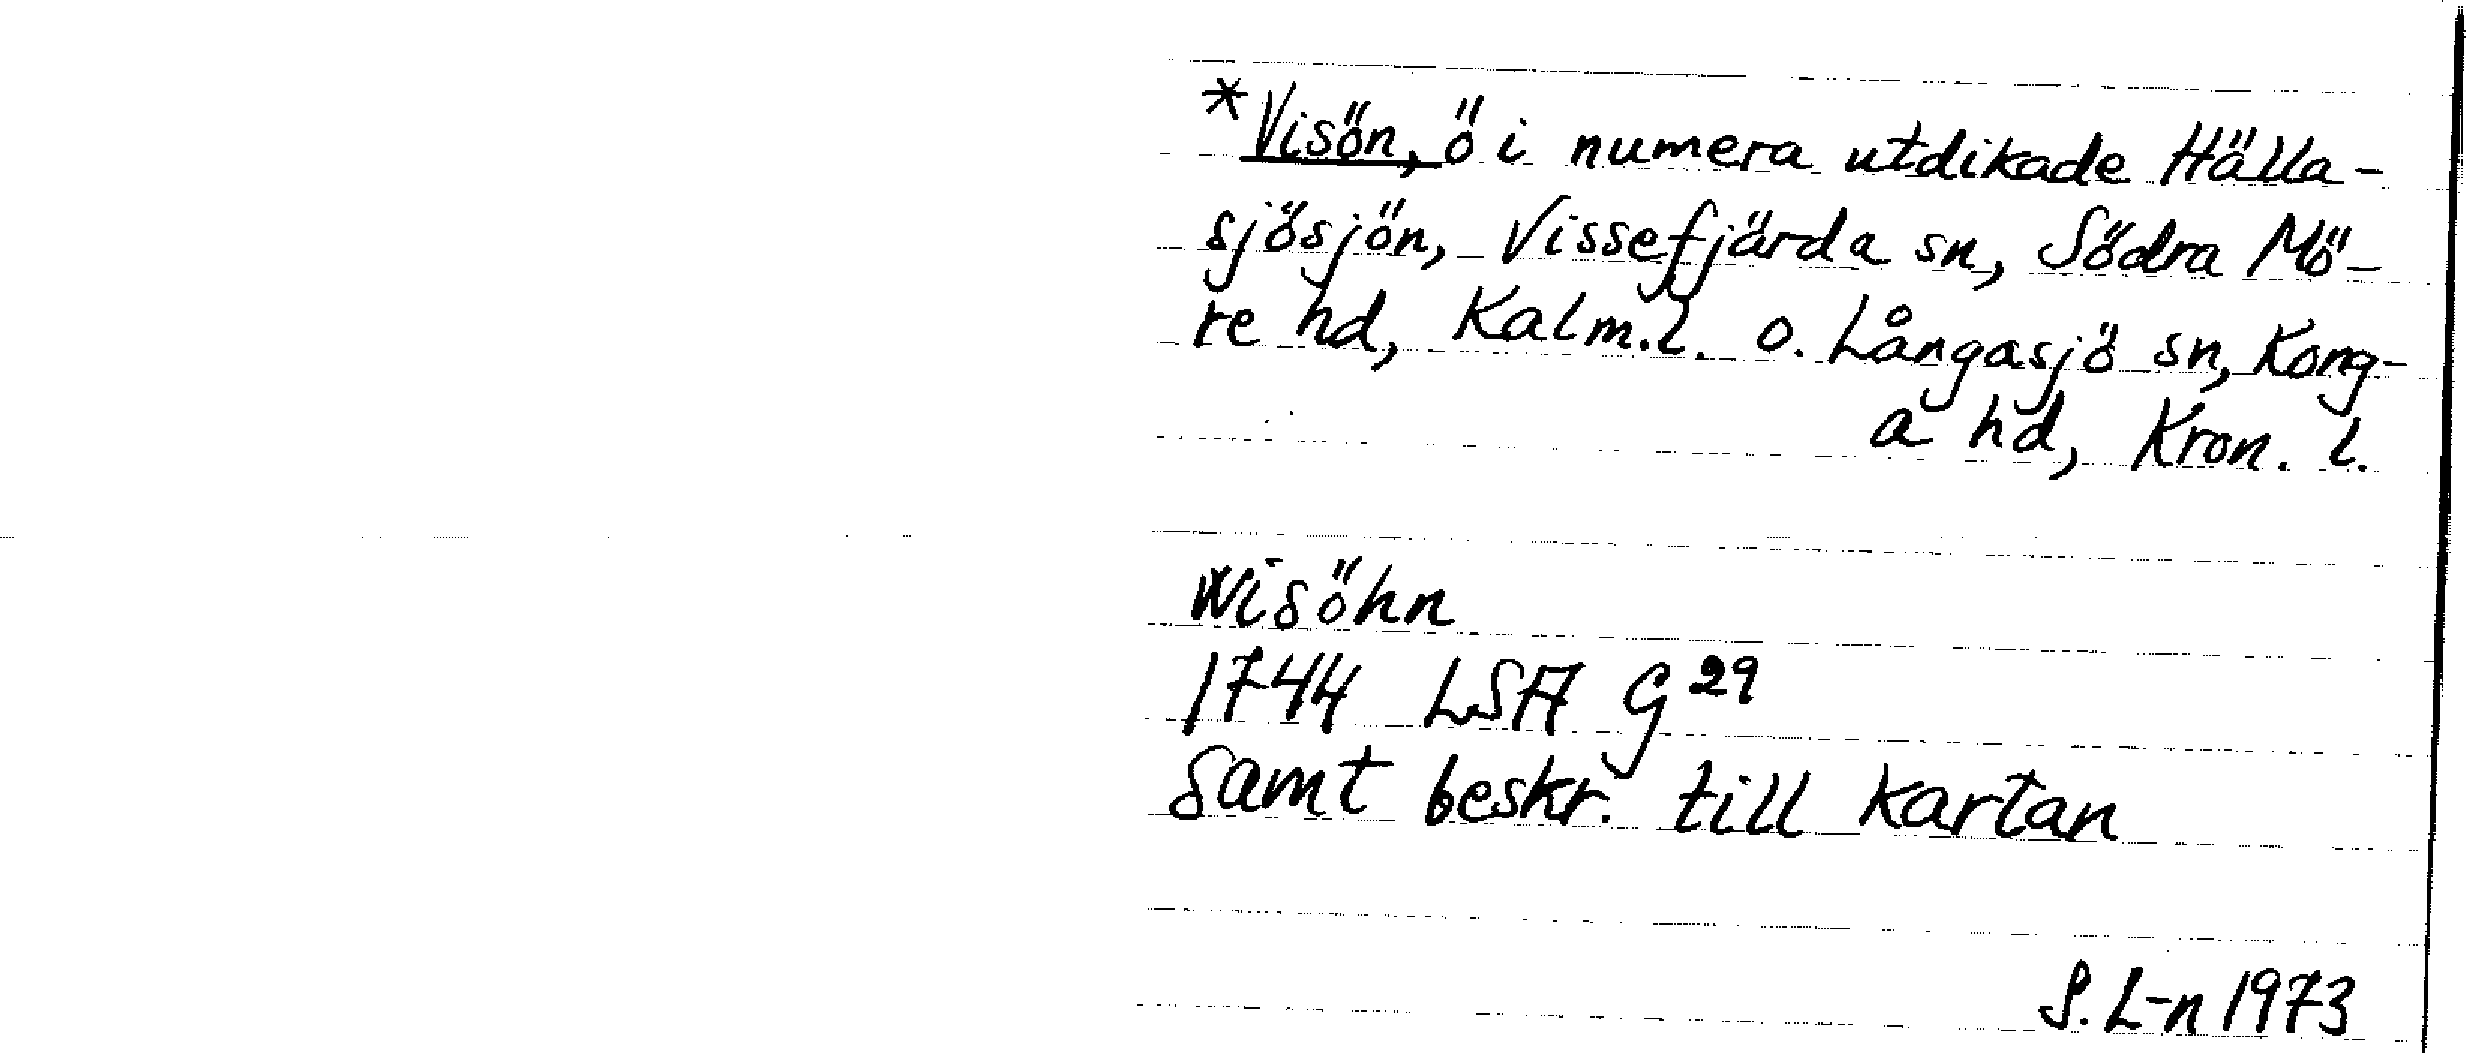 *Visön, ö i numera utdikade Hälla-
sjösjön, Vissefjärda sn, Södra Mö-
re hd, Kalm.l. o. Långasjö sn, Kong-
a hd, Kron. l.
Wisöhn
1744 LSA G 29
Samt beskr. till kartan
S. L-n 1973